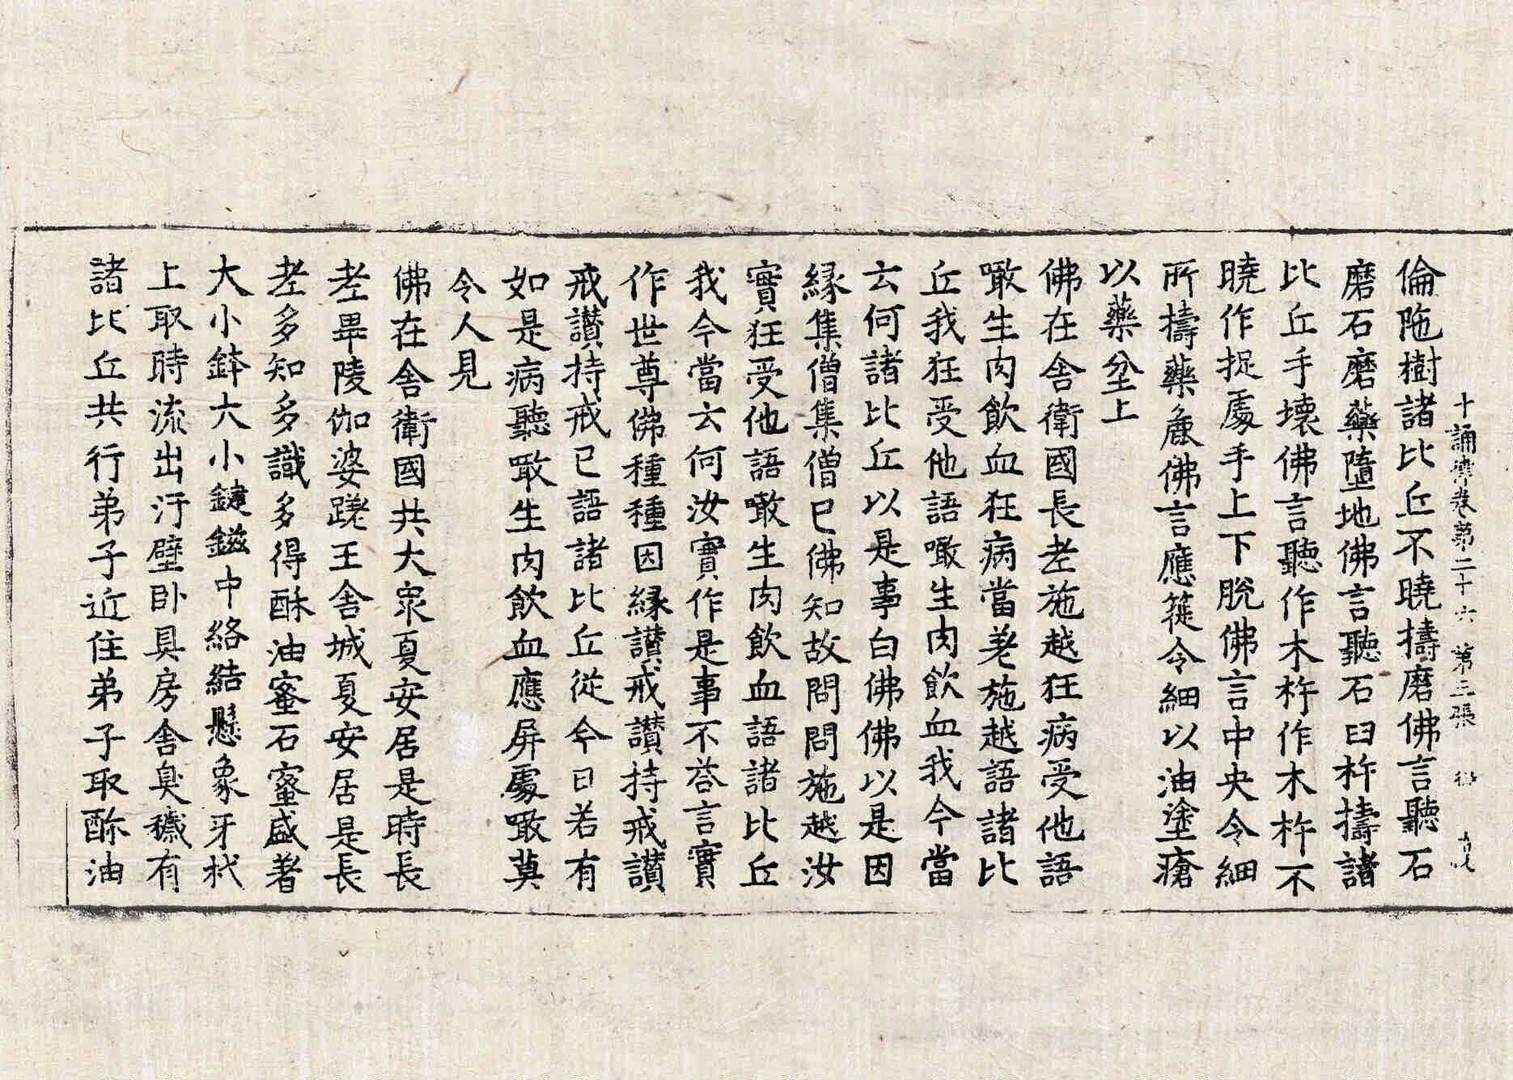 十誦律卷第二十六 第三張
倫陁樹諸比丘不曉擣磨佛言聽石
磨石磨藥墮地佛言聽石臼杵擣諸
比丘手壞佛言聽作木杵作木杵不
曉作捉處手上下脫佛言中央令細
所擣藥麁佛言應簁令細以油塗瘡
以藥坌上
佛在舍衛國長老施越狂病受他語
噉生肉飮血狂病當差施越語諸比
丘我狂受他語噉生肉飮血我今當
云何諸比丘以是事白佛佛以是因
緣集僧集僧已佛知故問問施越汝
實狂受他語噉生肉飮血語諸比丘
我今當云何汝實作是事不荅言實
作世尊佛種種因緣讃戒讃持戒讃
戒讃持戒已語諸比丘從今日若有
如是病聽噉生肉飮血應屛處噉莫
令人見
佛在舍衛國共大衆夏安居是時長
老畢陵伽婆蹉王舍城夏安居是長
老多知多識多得酥油蜜石蜜盛著
大小鉢大小鍵鎡中絡結懸象牙杙
上取時流出汙壁卧具房舍臭穢有
諸比丘共行弟子近住弟子取酥油